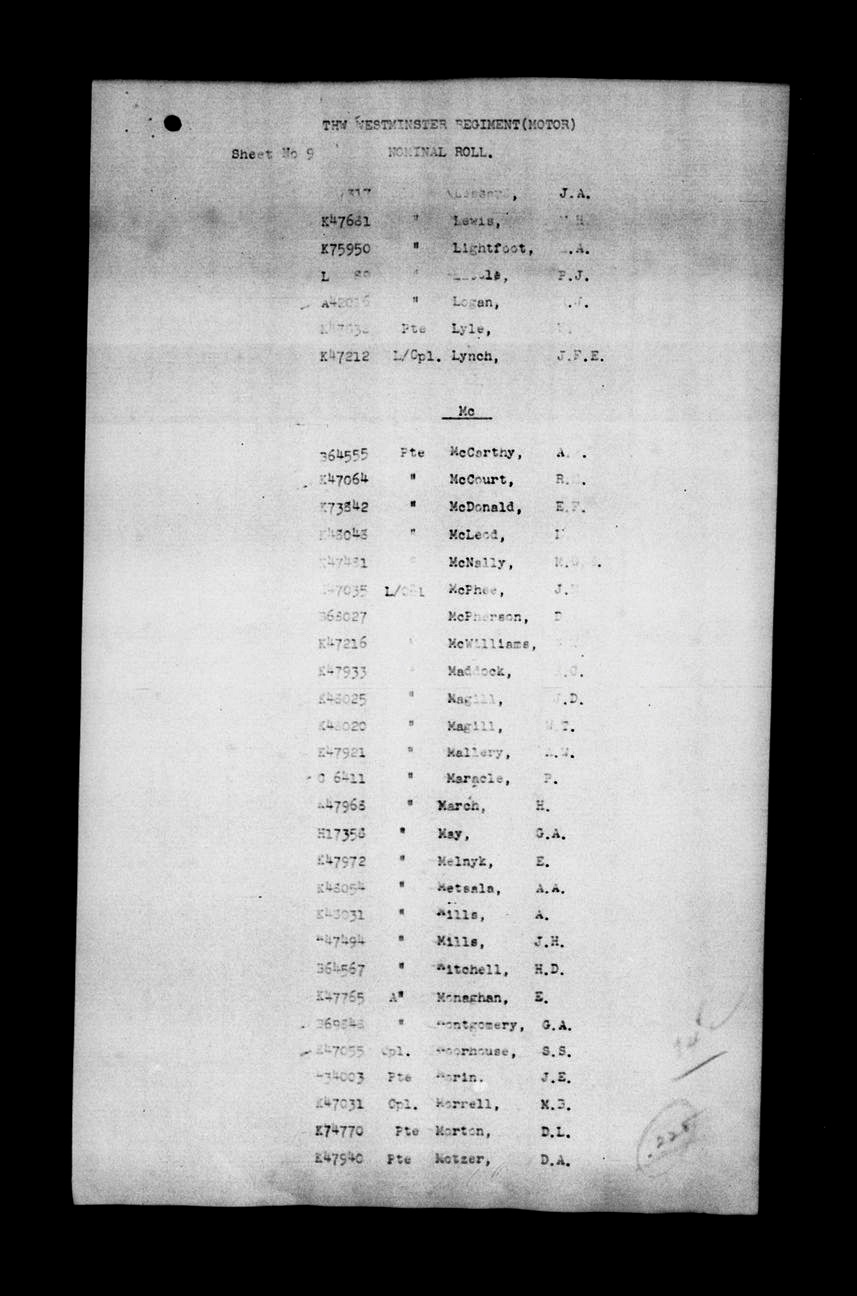 THW WESTMINSTER REGIMENT(MOTOR)
Sheet No 9 NOMINAL ROLL.
J.A.
K47681 " Lewis,
K75950 " Lightfoot,
P.J.
" Logan,
Pte Lyle,
K47212 L/Cpl. Lynch, J.F.E.
Mc
B64555 Pte McCarthy, A.
K47064 " McCourt,
K73842 " McDonald, E.F.
K48048 " McLeod,
K47481 McNally,
L/Cpl McPhee,
B68027 McPherson, D
K47216 McWilliams,
K47933 Maddock,
K48025 " Magill, J.D.
K48020 " Magill, W.T.
K47921 " Mallery, A.W.
C 6411 " Maracle, P.
K47968 " March, H.
H17358 " May, G.A.
K47972 " Melnyk, E.
K48054 " Metsala, A.A.
K48031 " Mills, A.
K47494 " Mills, J.H.
B64567 " Mitchell, H.D.
K47765 A" Monaghan, E.
" Montgomery, G.A.
K47055 Cpl. Moorhouse, S.S.
Pte Morin. J.E.
K47031 Cpl. Morrell, M.B.
K74770 Pte Morton, D.L.
K47940 Pte Motzer, D.A.
.225